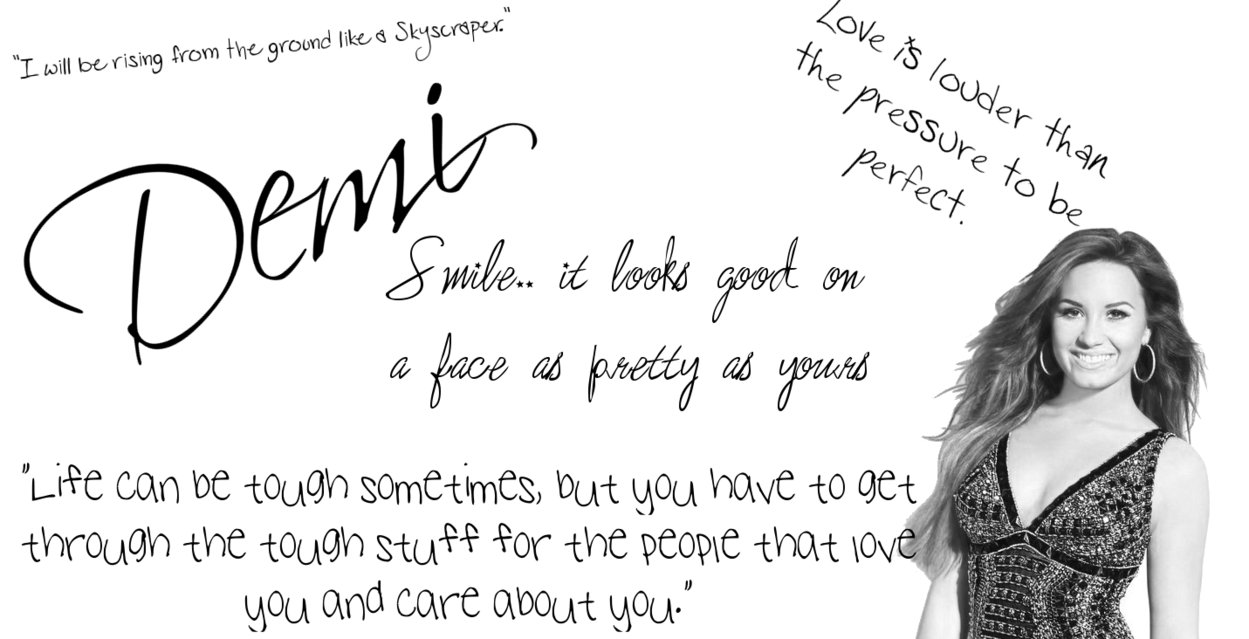 "I will be rising from the ground like a Skyscraper."
Love is louder than
the pressure to be
perfect.
Demi
Smile.. it looks good on
a face as pretty as yours
"Life can be tough sometimes, but you have to get
through the tough stuff for the people that love
you and care about you."